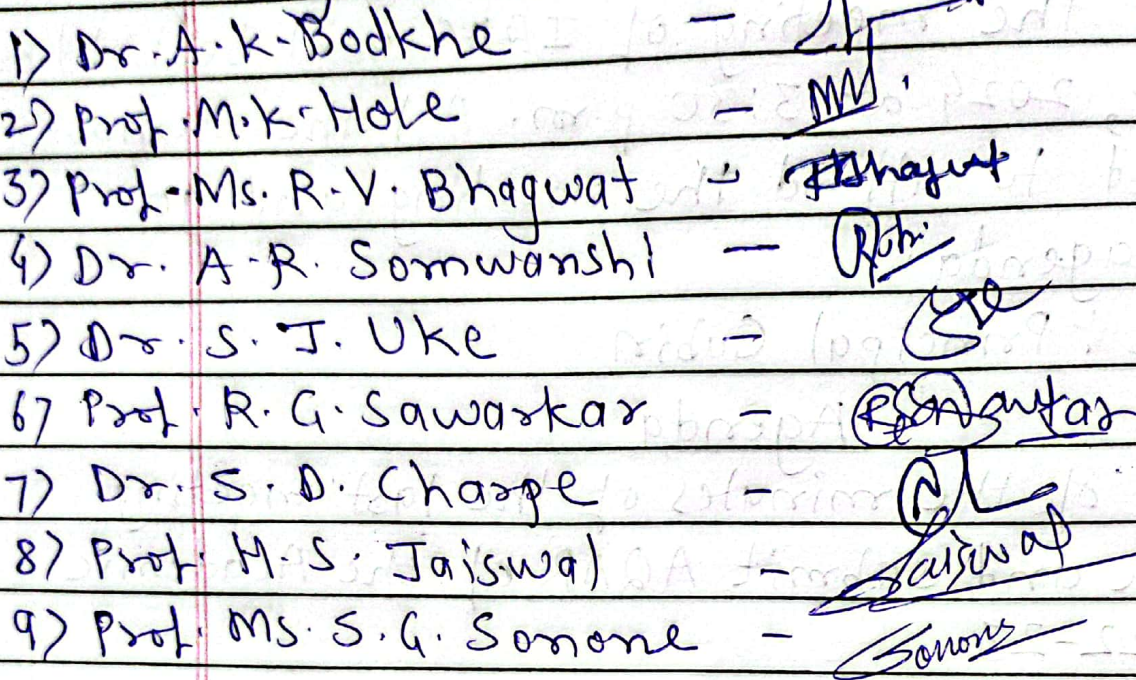 1) Dr. A. K. Bodkhe -
2) Prof. M. K. Hole -
3) Prof. Ms. R. V. Bhagwat - Bhagwat
4) Dr. A. R. Somwanshi -
5) Dr. S. J. Uke -
6) Prof. R. G. Sawarkar -
7) Dr. S. D. Charpe -
8) Prof. H. S. Jaiswal - Jaiswal
9) Prof. Ms. S. G. Sonone - Sonone